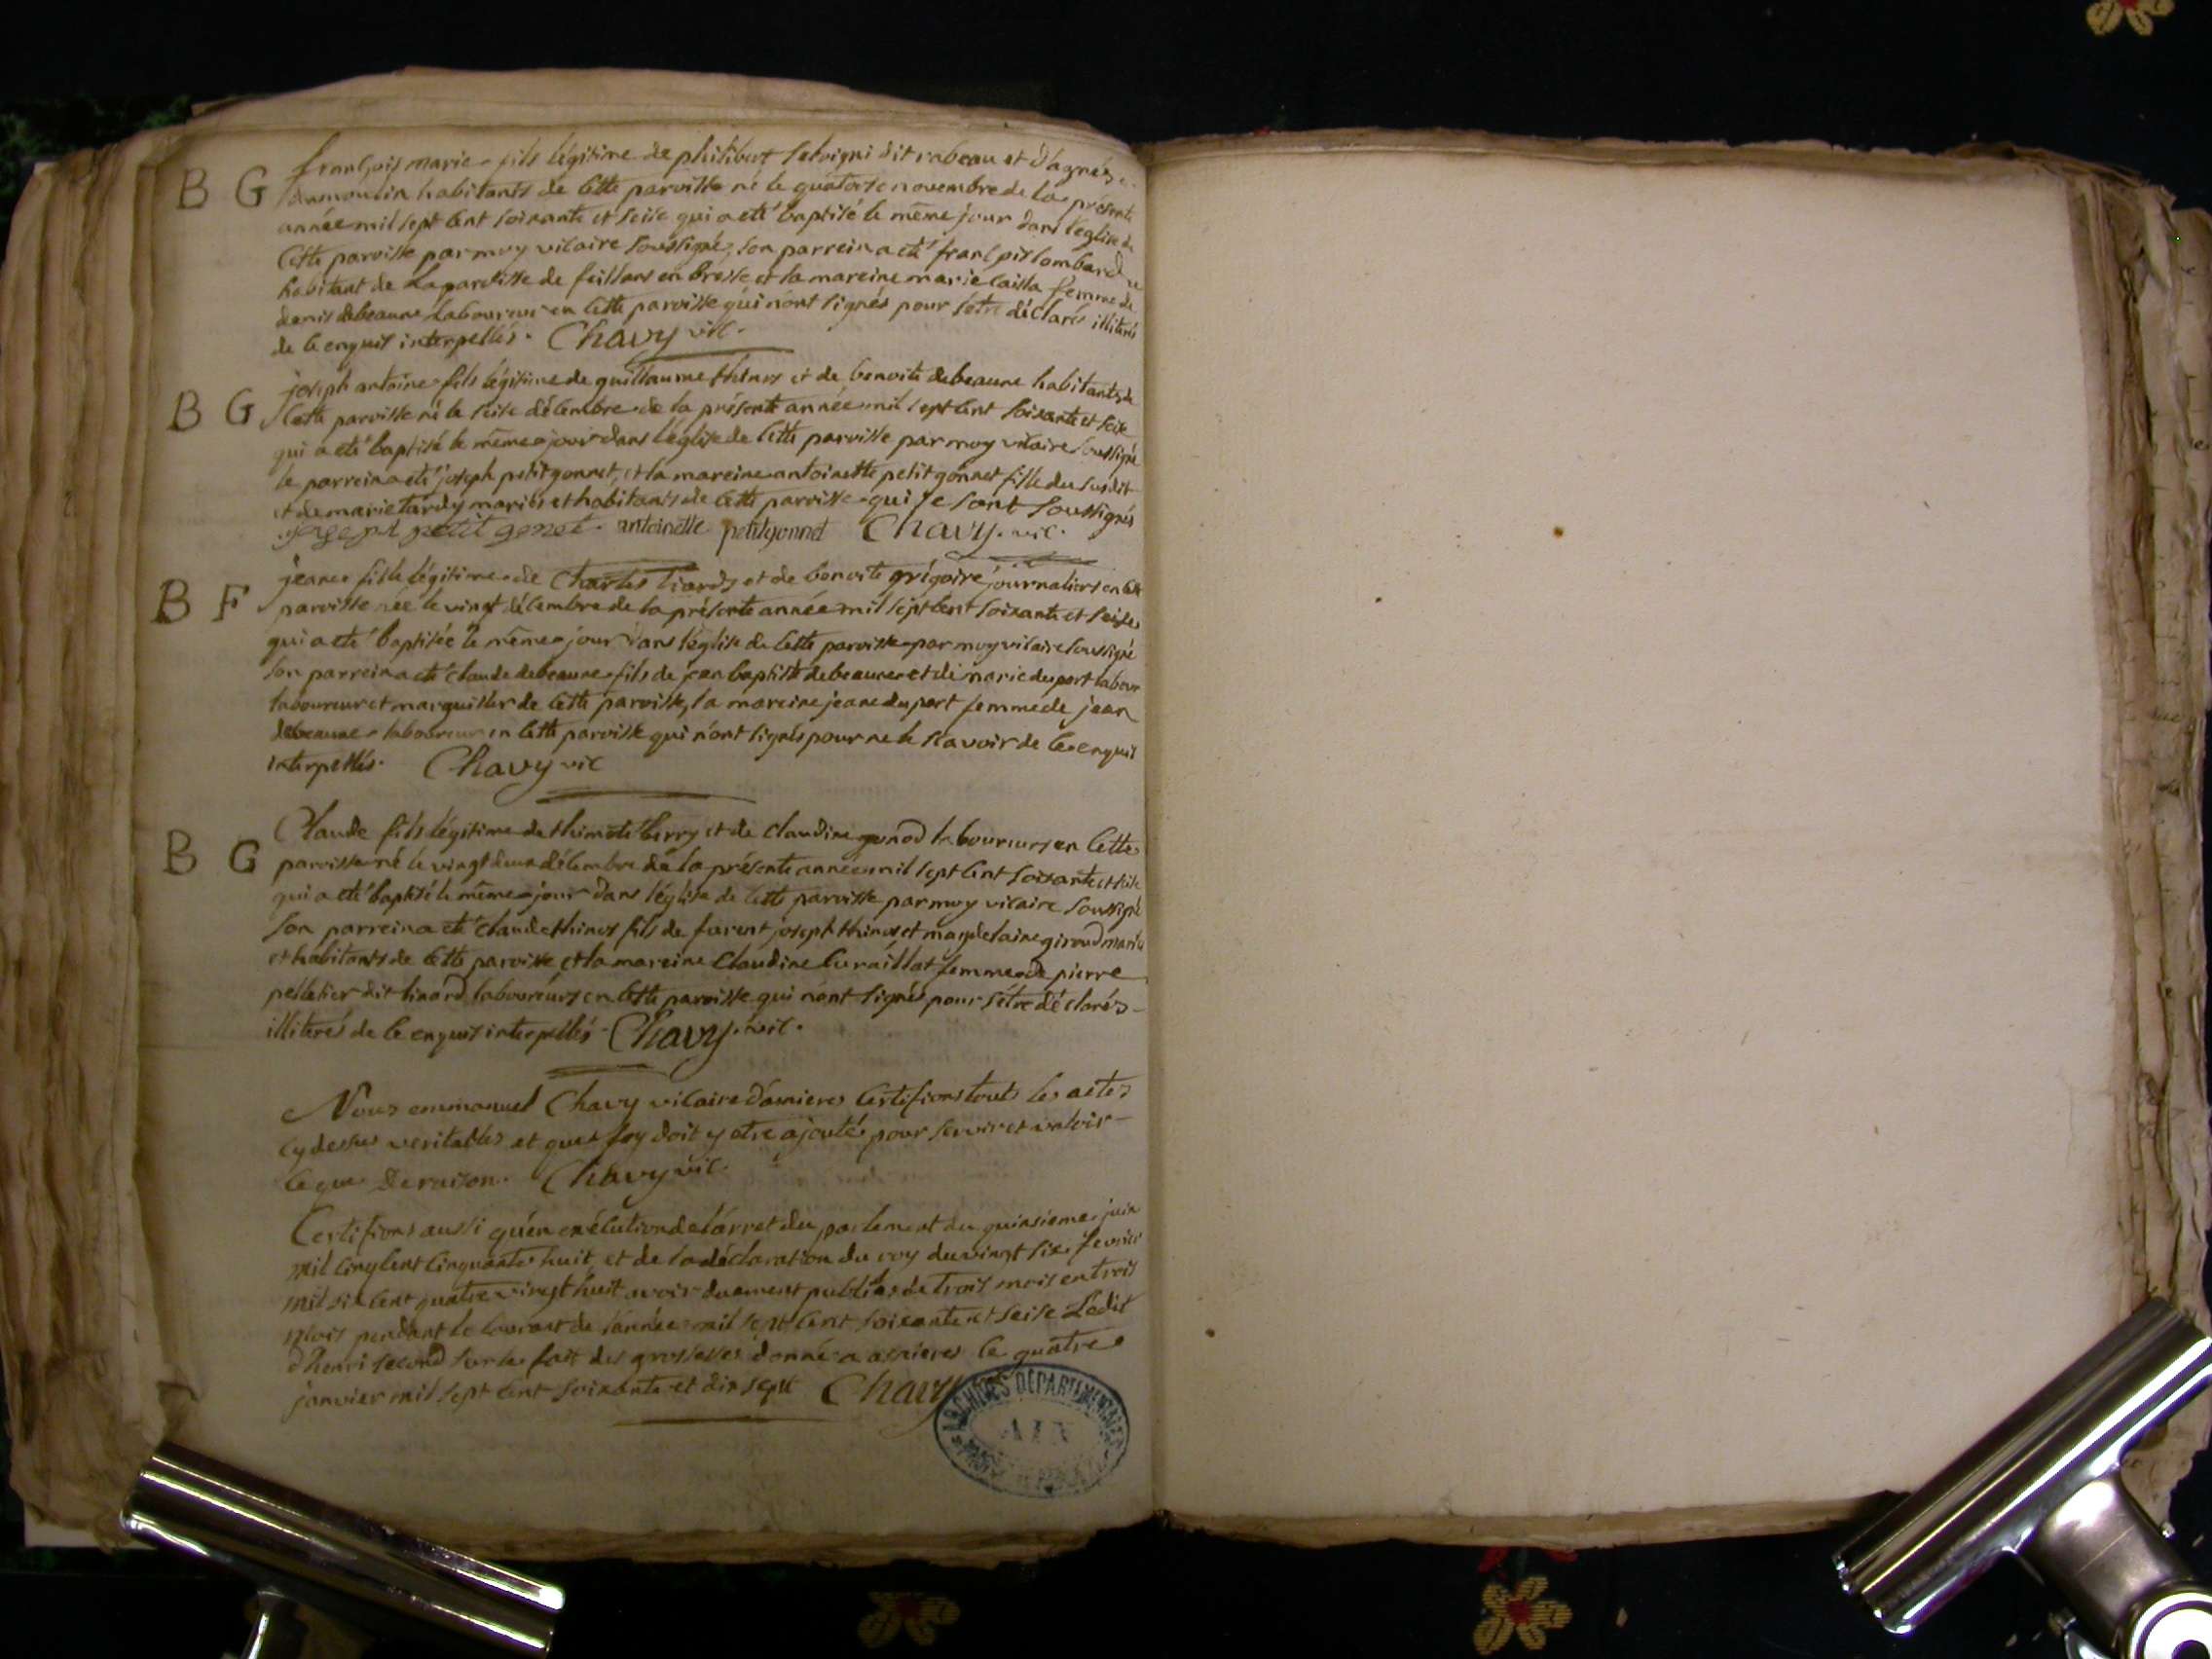 B G françois marie fils légitime de philibert seloigni dit rabeau et d'agnés
dumoulin habitants de cette paroisse né le quatorse novembre de la présente
année mil sept cent soixante et seise qui a eté baptisé le même jour dans l'eglise de
cette paroisse par moy vicaire soussigné, son parrein a eté françois lombard
habitant de la paroisse de feillans en bresse et la mareine marie femme de
denis debeaune laboureur en cette paroisse qui n'ont signés pour s'etre déclarés illiterés
de ce enquis interpellés. Chavy vic.
B G joseph antoine fils légitime de guillaume thinos et de benoite debeaune habitants de
cette paroisse né le seise décembre de la présente année mil sept cent soixante et seise
qui a eté baptisé le même jour dans l'église de cette paroisse par moy vicaire soussigné
le parrein a eté joseph petitgonnet, et la mareine antoinette petitgonnet fille du susdit
et de marie tardy mariés et habitants de cette paroisse qui se sont soussignés
joseph petit gonet. antoinette petitgonnet Chavy. vic.
B F jeane fille légitime de Charles tiards et de benoite grégoire journaliers en cette
paroisse née le vingt décembre de la présente année mil sept cent soixante et seise
qui a eté baptisée le même jour dans l'église de cette paroisse par moy vicaire soussigné
son parrein a eté claude debeaune fils de jean baptiste debeaune et de marie duport labour
laboureur et marguiller de cette paroisse, la mareine jeane duport femme de jean
debeaune laboureur en cette paroisse qui n'ont signés pour ne le scavoir de ce enquis
interpellés. Chavy vic
B G Claude fils légitime de thimoté berry et de claudine gonod laboureurs en cette
paroisse né le vingt deux décembre de la présente année mil sept cent soixante et seise
qui a eté baptisé le même jour dans l'église de cette paroisse par moy vicaire soussigné
son parrein a eté claude thinos fils de furent joseph thinos et magdelaine giroud mariés
et habitants de cette paroisse et la mareine Claudine curaillat femme de pierre
pelletier dit linard laboureurs en cette paroisse qui n'ont signés pour s'étre déclarés
illiterés de ce enquis interpellés Chavy. vic.
Nous emmanuel Chavy vicaire d'asnieres certifions touts les actes
cy dessus veritables et que foy doit y etre ajouté pour servir et valoir
ce que de raison. Chavy vic.
Certifions aussi qu'en exécution de l'arret du parlement du quinsieme juin
mil cinq cent cinquante huit, et de la déclaration du roy du vingt six fevrier
mil six cent quatre vingt huit avoir duement publiés de trois mois en trois
mois pendant le courant de l'année mil sept cent soixante et seise L'édit
d'henri second sur le fait des grossesses donné a asnieres le quatre
janvier mil sept cent soixante et dix sept Chavy
ARCHIVES DÉPARTEMENTALES
AIN